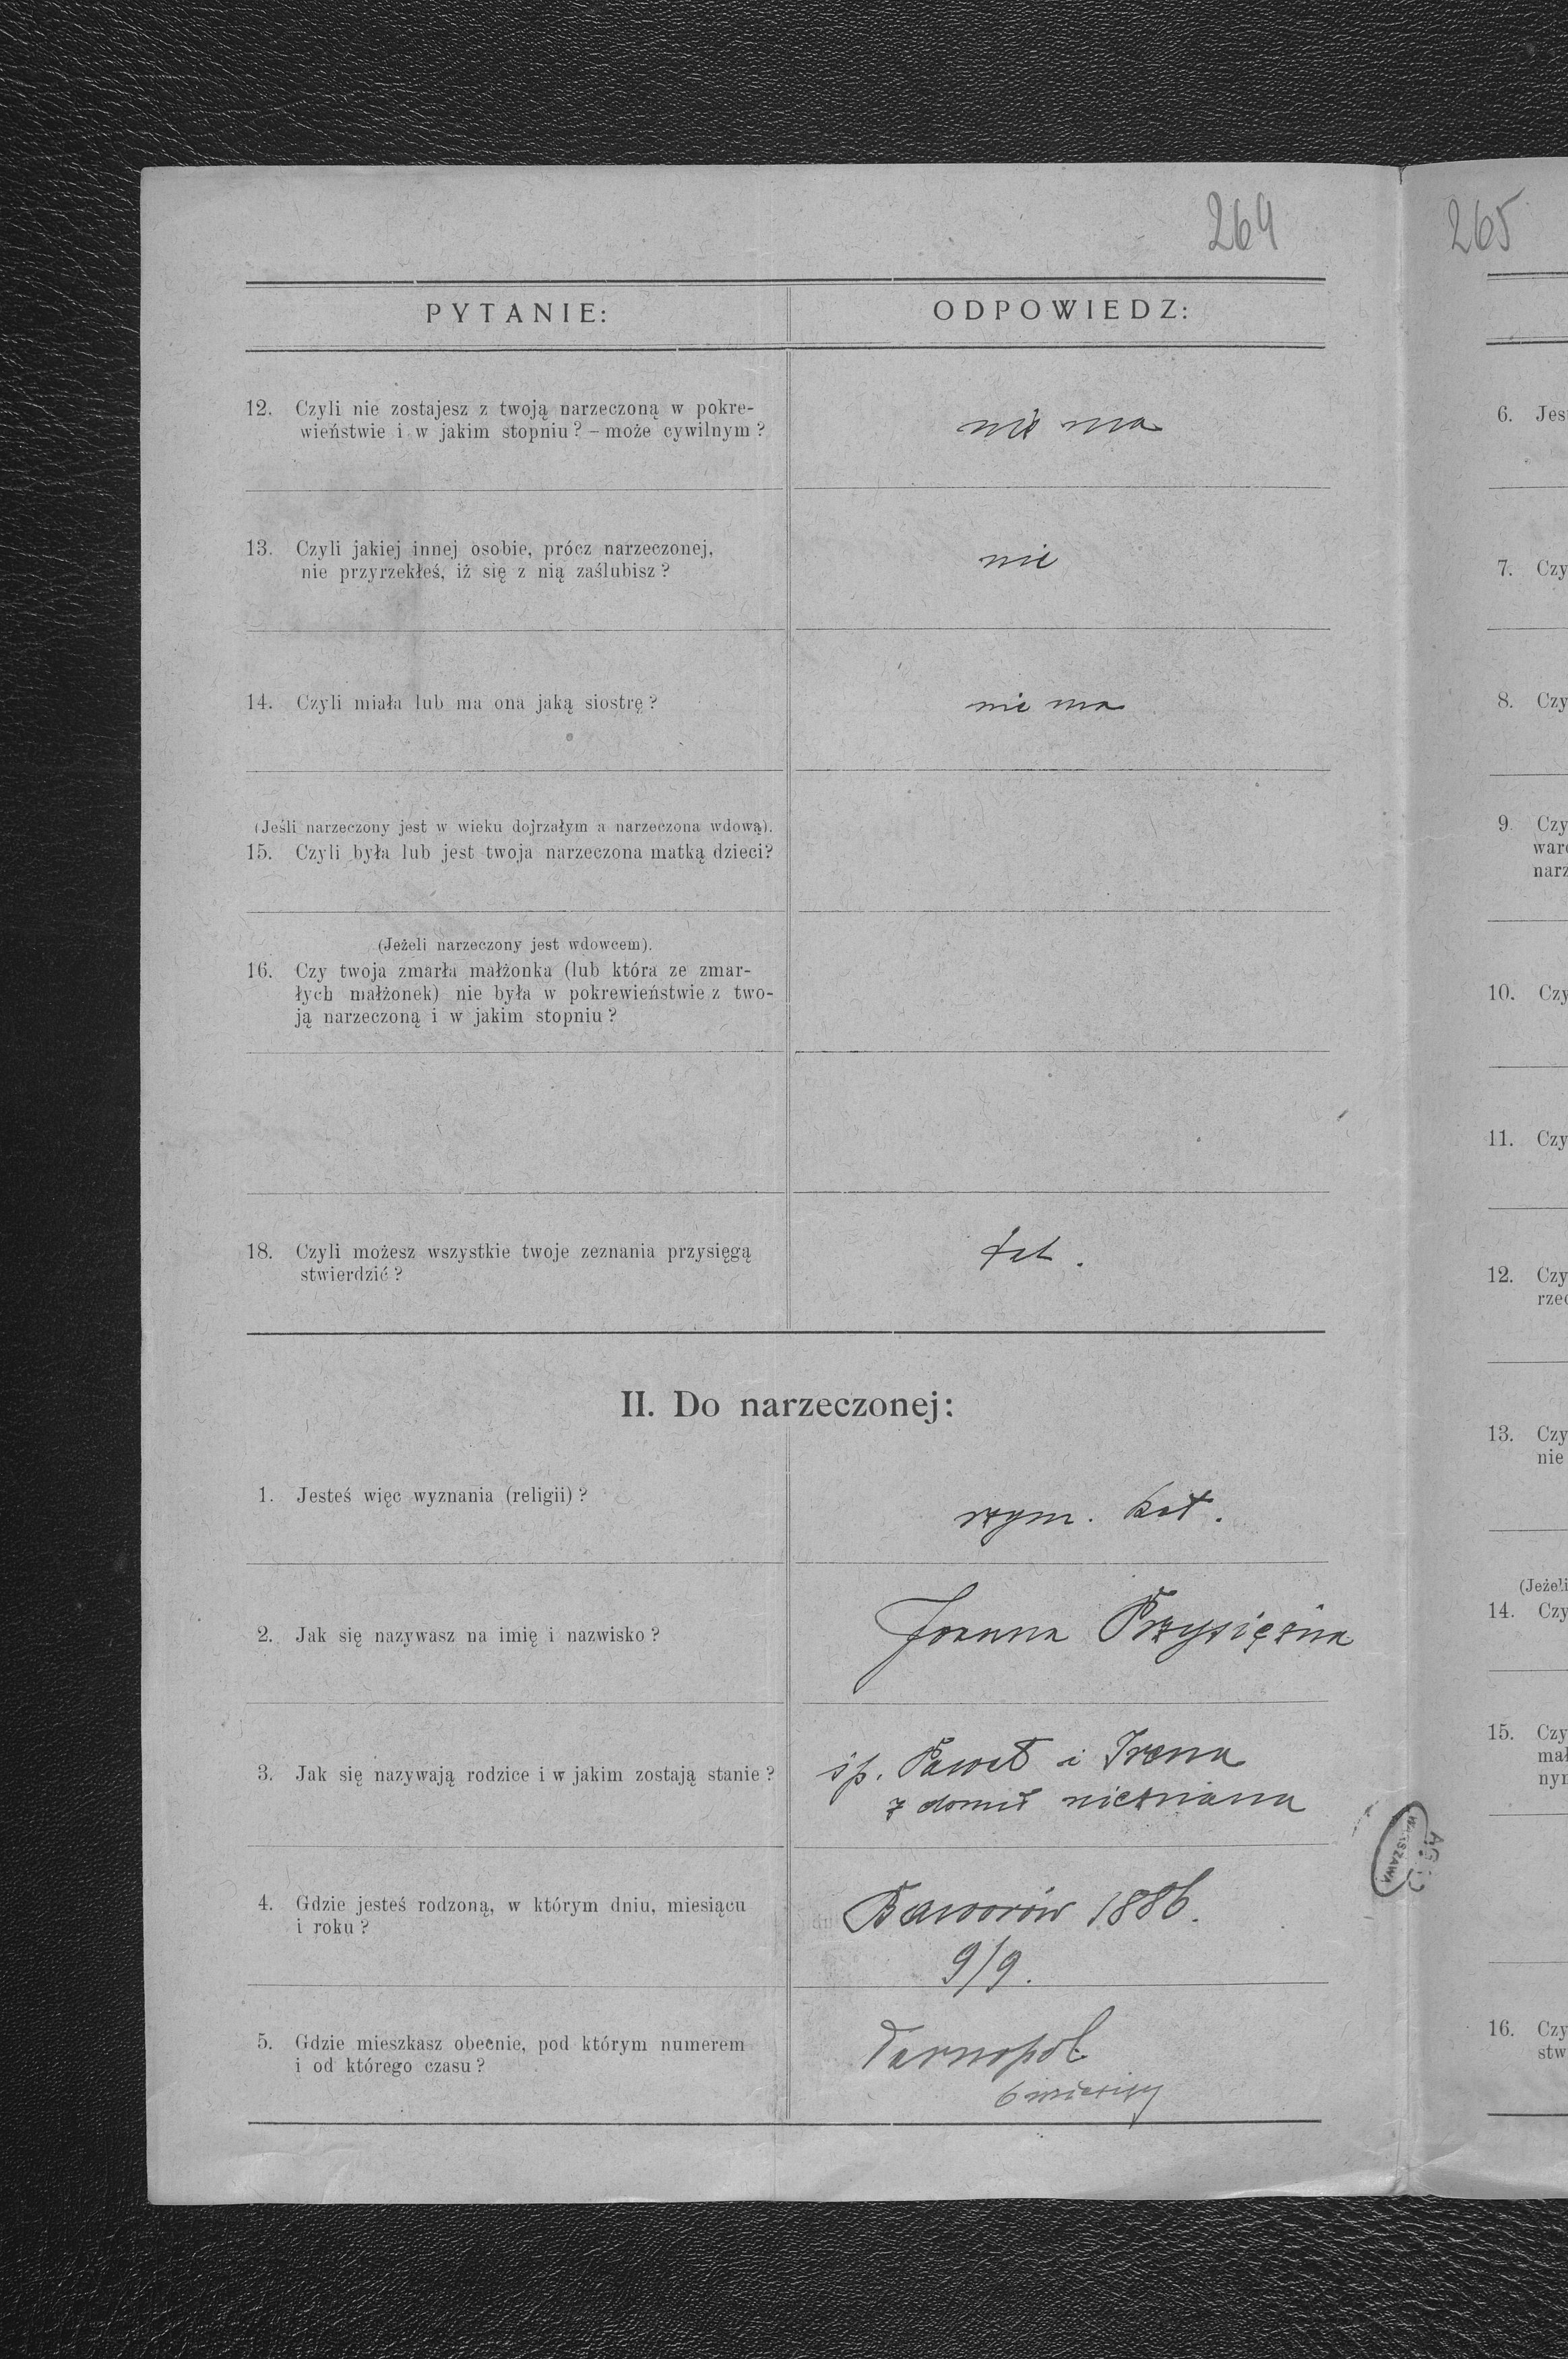 264
265
PYTANIE:
ODPOWIEDZ:
12. Czyli nie zostajesz z twoją narzeczoną w pokre-
wieństwie i w jakim stopniu? – może cywilnym?
nie ma
13. Czyli jakiej innej osobie, prócz narzeczonej,
nie przyrzekłeś, iż się z nią zaślubisz?
nie
14. Czyli miała lub ma ona jaką siostrę?
nie ma
(Jeśli narzeczony jest w wieku dojrzałym a narzeczona wdową).
15. Czyli była lub jest twoja narzeczona matką dzieci?
(Jeżeli narzeczony jest wdowcem).
16. Czy twoja zmarła małżonka (lub która ze zmar-
łych małżonek) nie była w pokrewieństwie z two-
ją narzeczoną i w jakim stopniu?
18. Czyli możesz wszystkie twoje zeznania przysięgą
stwierdzić?
tak.
II. Do narzeczonej:
1. Jesteś więc wyznania (religii)?
rzym. kat.
2. Jak się nazywasz na imię i nazwisko?
Joanna Przysiężna
3. Jak się nazywają rodzice i w jakim zostają stanie?
śp. Paweł i Irena
z domu nieznana
4. Gdzie jesteś rodzoną, w którym dniu, miesiącu
i roku?
Baworów 1886.
9/9.
5. Gdzie mieszkasz obecnie, pod którym numerem
i od którego czasu?
Tarnopol
6 miesięcy
AGAD
WARSZAWA
6. Jes
7. Czy
8. Czy
9. Czy
ware
narz
10. Czy
11. Czy
12. Czy
rzec
13. Czy
nie
(Jeżeli
14. Czy
15. Czy
mał
nyn
16. Czy
stw